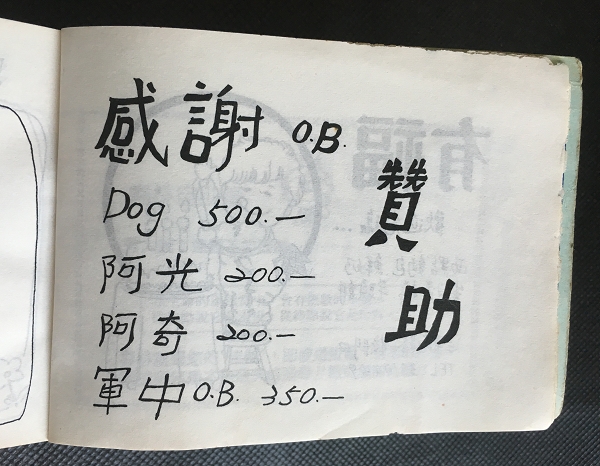 感謝 O.B.
Dog 500.—
阿光 200.—
阿奇 200.—
軍中 O.B. 350.—
贊助
有福